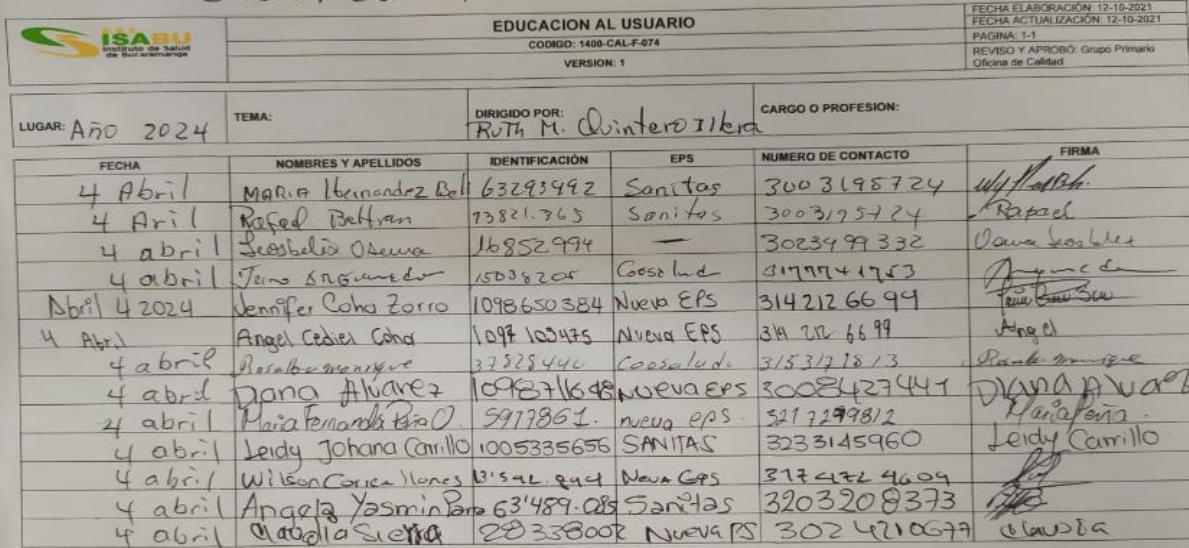 ISABU
Instituto de Salud
de Bucaramanga
EDUCACION AL USUARIO
CODIGO: 1400-CAL-F-074
VERSION: 1
FECHA ELABORACIÓN: 12-10-2021
FECHA ACTUALIZACIÓN: 12-10-2021
PAGINA: 1-1
REVISO Y APROBÓ: Grupo Primario
Oficina de Calidad
LUGAR: Año 2024 TEMA: DIRIGIDO POR: Ruth M. Quintero CARGO O PROFESION:
FECHA NOMBRES Y APELLIDOS IDENTIFICACIÓN EPS NUMERO DE CONTACTO FIRMA
4 Abril MARIA Hernandez Bell 63293492 Sanitas 3003195724
4 Aril Rafael Beltran 13821.365 Sanitas 3003195724 Rafael
4 abril 16852994 — 3023499332
4 abril Coosalud
Abril 4 2024 Jennifer Coha Zorro 1098650384 Nueva EPS 314212 66 99
4 Abril Angel Cediel Coha 1097 103475 Nueva EPS 314 212 66 99 Angel
4 abril Rosalba manrique 37828440 Coosalud. 3153171813 manrique
4 abril Diana Alvarez 1098711648 Nueva EPS 3008427441 Diana Alvarez
4 abril Maria Fernanda 5917861. nueva eps. 3217299812 Maria Peña.
4 abril Leidy Johana Carrillo 1005335656 SANITAS 3233145960 Leidy Carrillo
4 abril Wilson Correa 317 472 4604
4 abril Angela Yasmin 63'489.085 Sanitas 3203208373
4 abril Claudia Sierra Nueva PS 302 4210677 Claudia